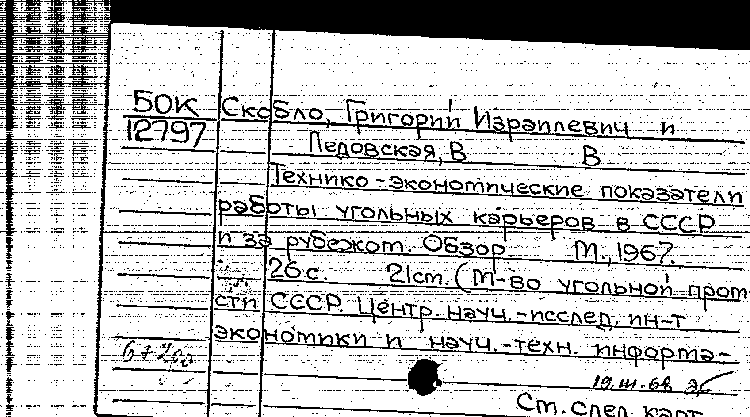 БОК
12797
Скобло, Григорий Израилевич и
Ледовская, В В
Технико-экономические показатели
работы угольных карьеров в СССР
и за рубежом. Обзор. М., 1967.
26 с. 21 ст. (М-во угольной пром
сти СССР. Центр. науч.-исслед. ин-т
экономики и науч.-техн. информа-
Ст. след. карт.